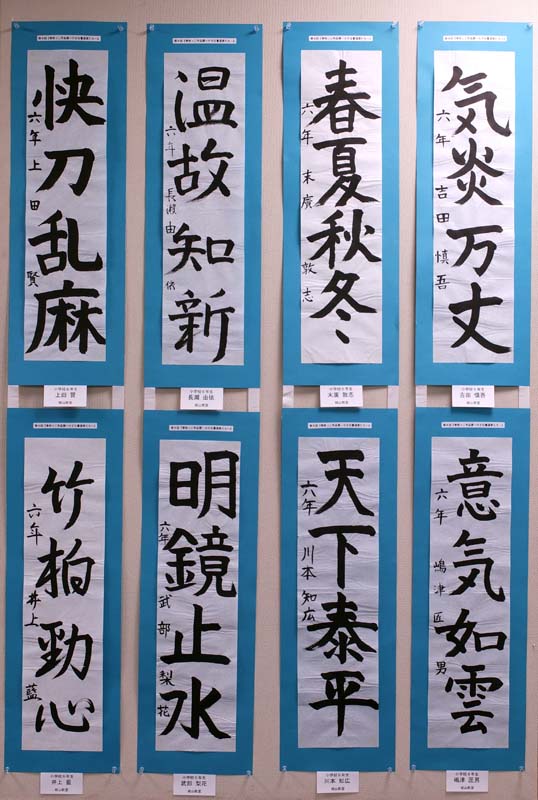 気炎万丈
六年 吉田慎吾
小学校六年生
吉田 慎吾
春夏秋冬
六年 末廣敦志
小学校六年生
末廣 敦志
温故知新
六年 長瀬由依
小学校六年生
長瀬 由依
快刀乱麻
六年 上田賢
小学校六年生
上田 賢
意気如雲
六年 嶋津匠男
小学校六年生
嶋津 匠男
天下泰平
六年 川本知広
小学校六年生
川本 知広
明鏡止水
六年 武部梨花
小学校六年生
武部 梨花
竹柏勁心
六年 井上藍
小学校六年生
井上 藍